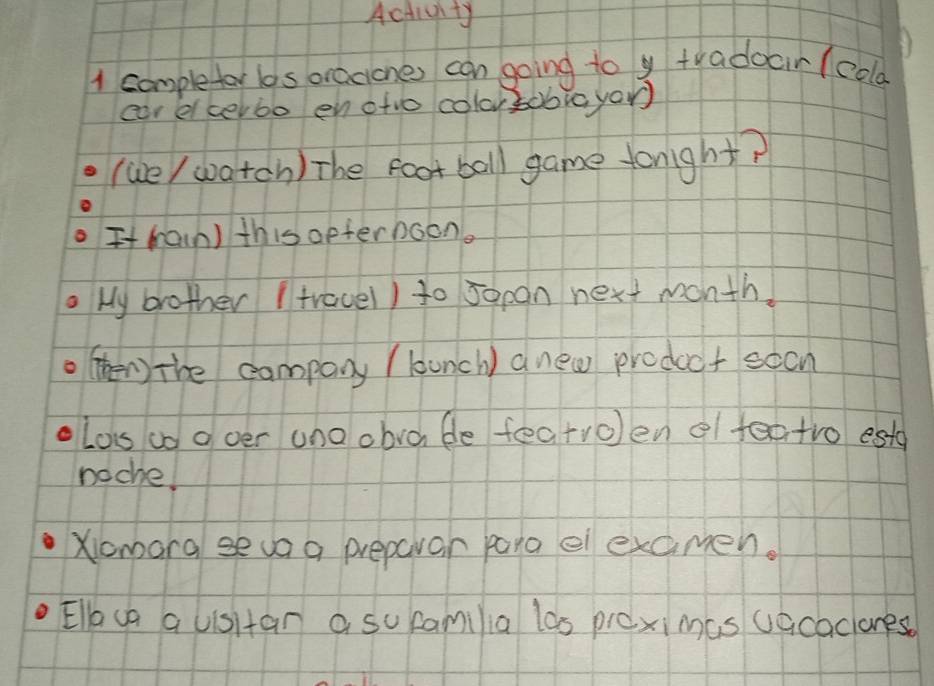 Activity
1 completar las oraciones con going to y traducir (colo
car el verbo en otro color subrayar)
(we/watch) The foot ball game tonight?
It (rain) this afternoon.
My brother (travel) to Japan next month.
(then) The company (launch) a new product soon
Lois va a ver una obra de teatro) en el teatro esta
noche.
Xiomara se va a preparar para el examen.
Ella va a visitar a su familia las proximas vacaciones.